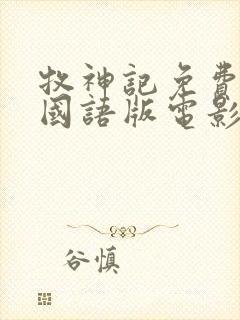 牧神記免費
國語版電影
谷慎